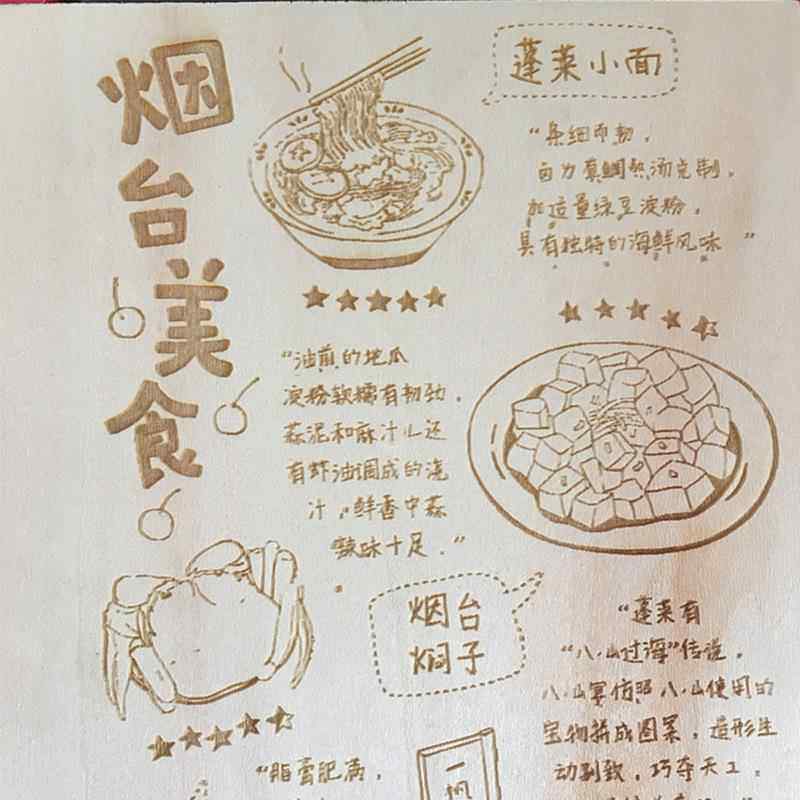 烟台美食
蓬莱小面
“条细而韧，
卤为真鲷熬汤克制，
加适量绿豆淀粉，
具有独特的海鲜风味”
“油煎的地瓜
淀粉软糯有韧劲，
蒜泥和麻汁儿还
有虾油调成的浇
汁，鲜香中蒜
辣味十足.”
烟台
焖子
“蓬莱有
“八仙过海”传说，
八仙宴仿照八仙使用的
宝物拼成图案，造形生
动别致，巧夺天工，
“脂膏肥满，
一帆